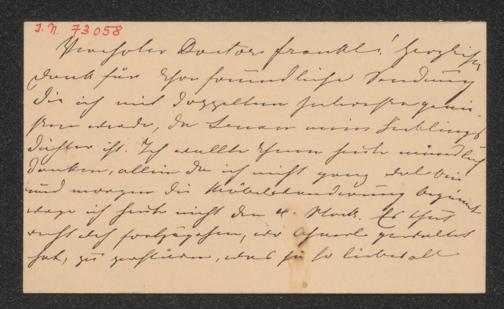 J. N. 73058
Verehrter Doctor Frankl! Herzlichen
Dank für Ihre freundliche Sendung
die ich mit doppeltem Interesse genie-
ßen werde, da Lenau mein Lieblings-
dichter ist. Ich wollte Ihnen heute mündlich
danken, allein da ich nicht ganz wol bin
und morgen die Möbelwanderung beginnt
wage ich heute nicht den 4. Stock. Es
recht
hat, zu